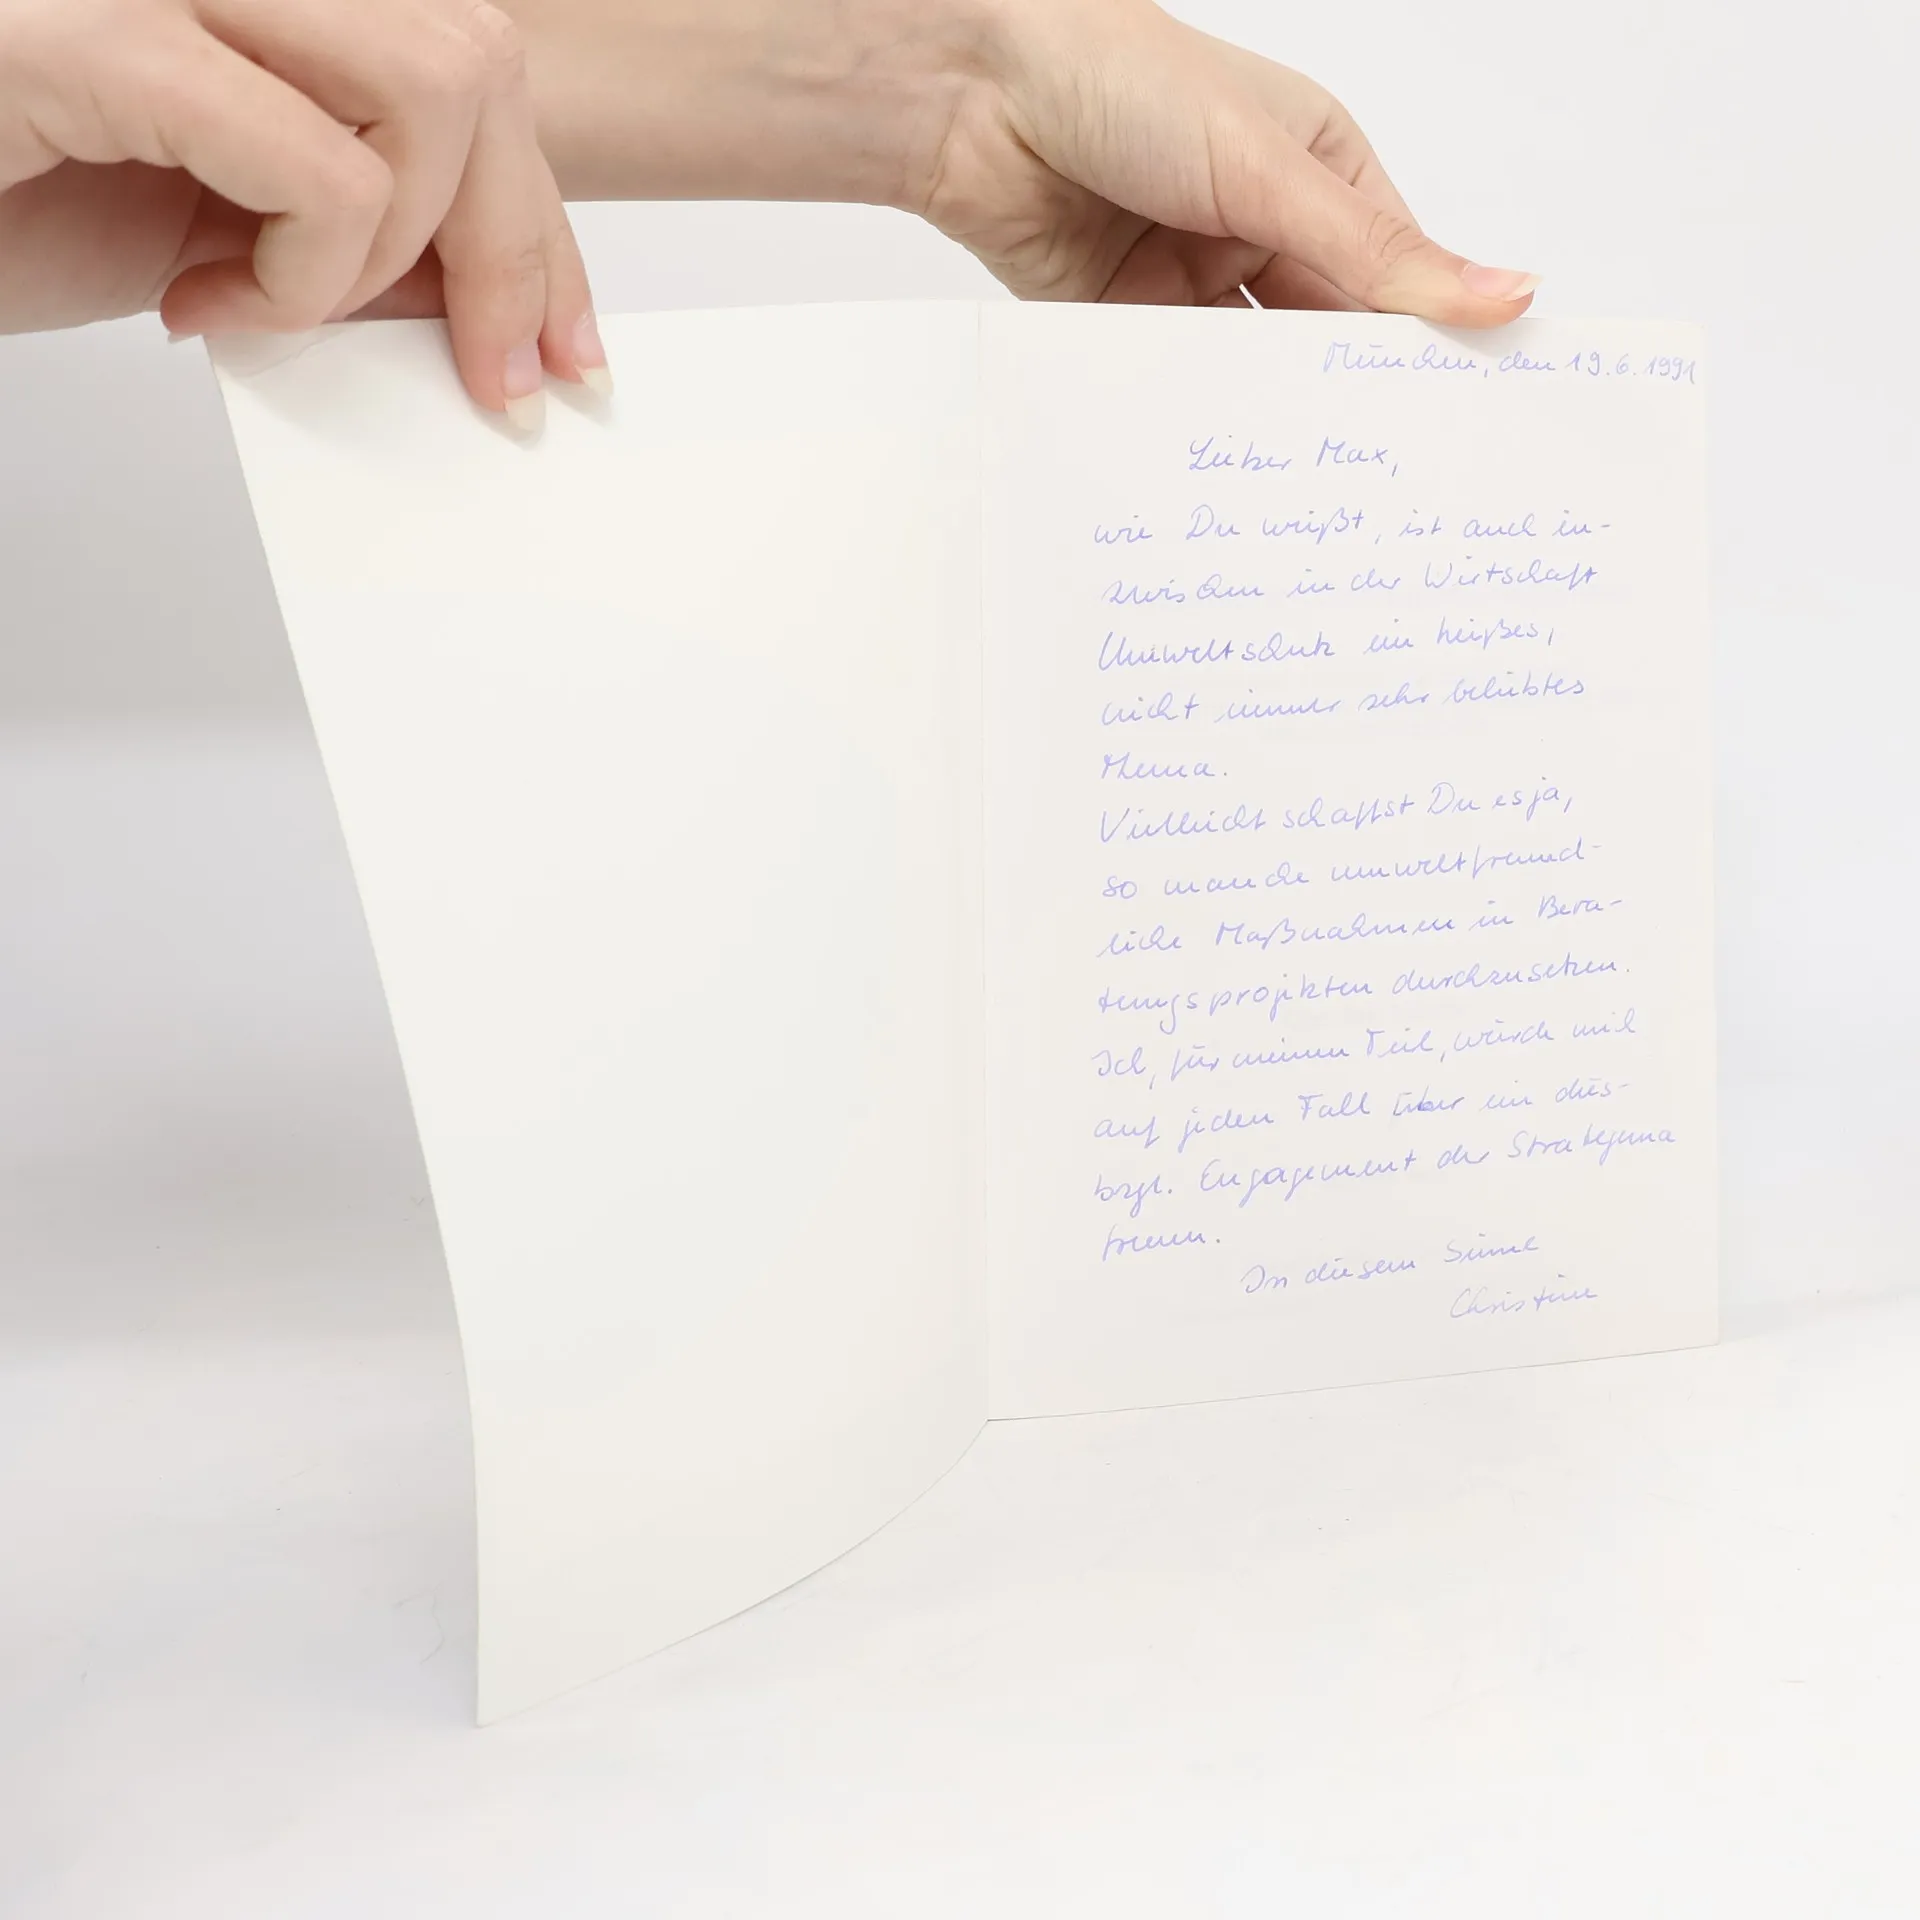 München, den 19.6.1991
Lieber Max,
wie Du weißt, ist auch in-
zwischen in der Wirtschaft
Umweltschutz ein heißes,
nicht immer sehr beliebtes
Thema.
Vielleicht schaffst Du es ja,
so manche umweltfreund-
liche Maßnahmen in Bera-
tungsprojekten durchzusetzen.
Ich, für meinen Teil, würde mich
auf jeden Fall über ein dies-
bzgl. Engagement der Strategema
freuen.
In diesem Sinne
Christine